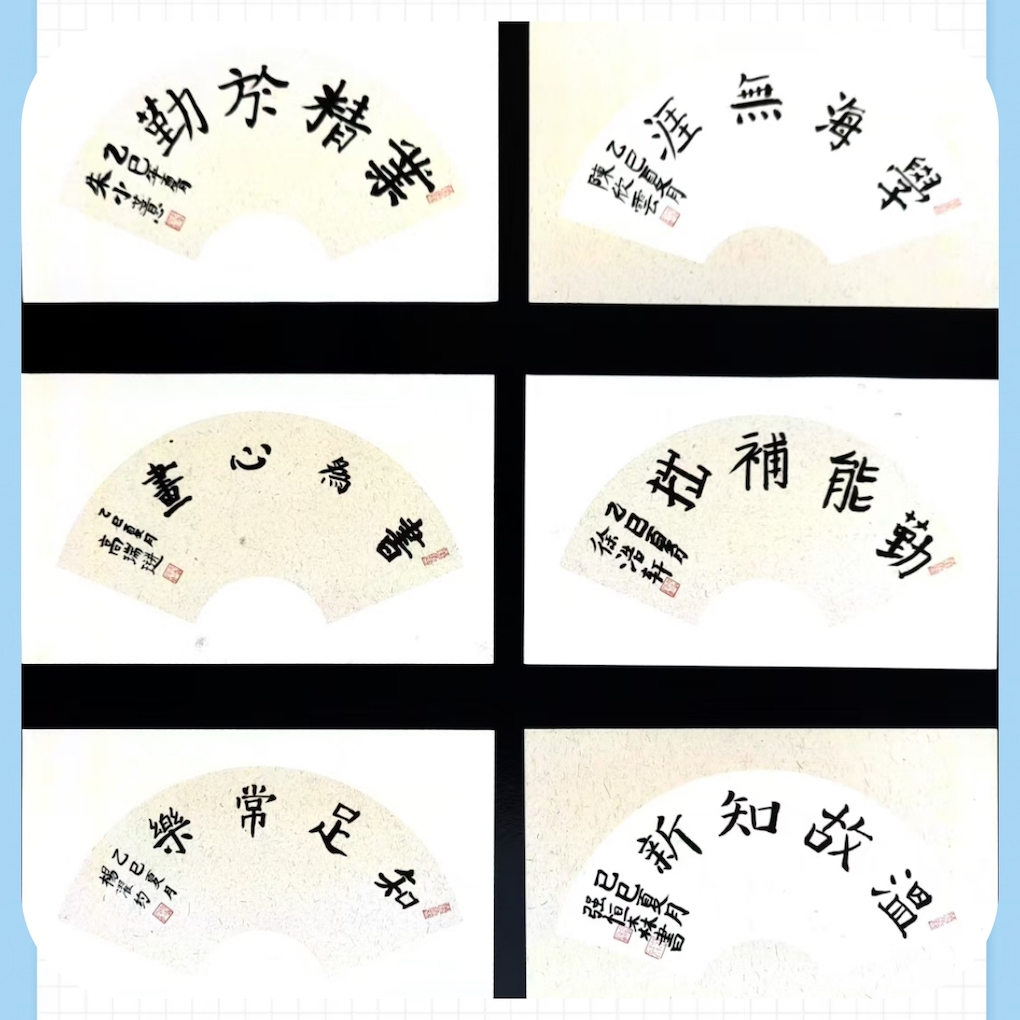 業精於勤
乙巳年夏
朱小
學海無涯
乙巳夏月
陳欣雲
書爲心畫
乙巳夏月
高瑞
勤能補拙
乙巳夏月
徐浩軒
知足常樂
乙巳夏月
楊
温故知新
己巳夏月
强恒森書